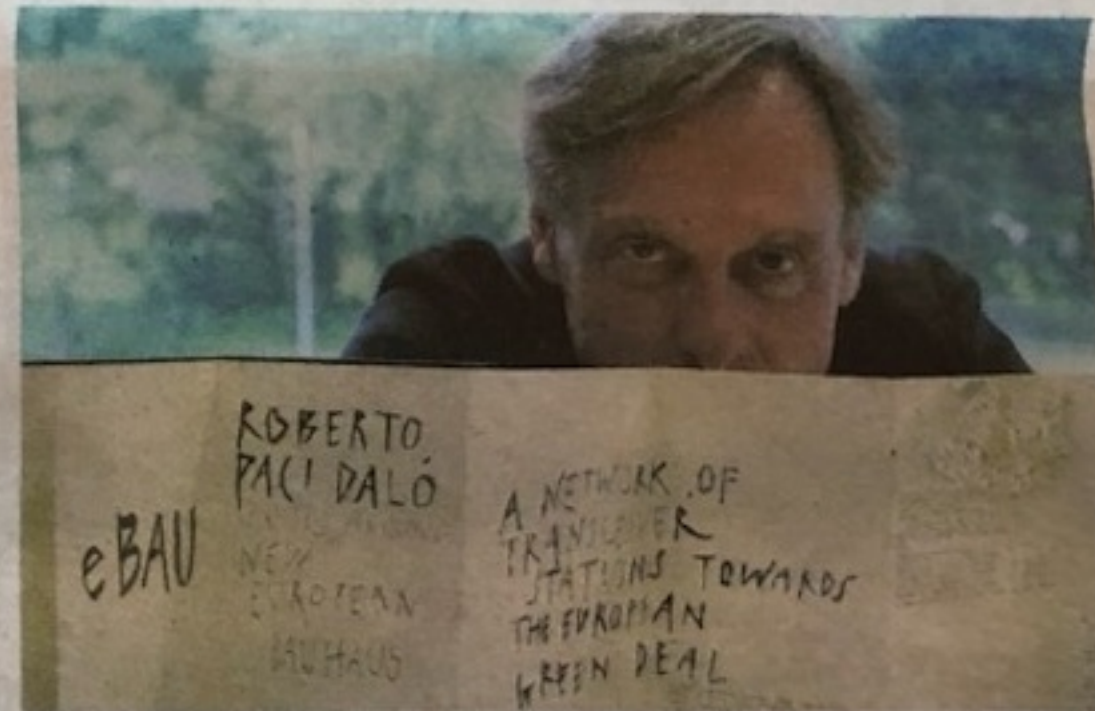 eBAU
ROBERTO
PACI DALÓ
NEW
EUROPEAN
BAUHAUS
A NETWORK OF
TRANSCEIVER
STATIONS TOWARDS
THE EUROPEAN
GREEN DEAL